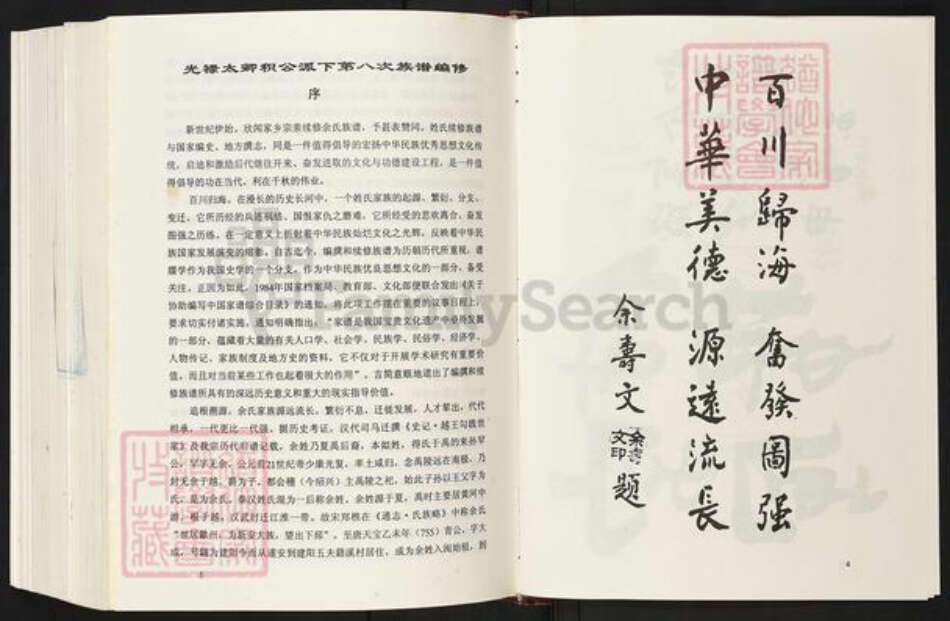 光禄太卿积公派下第八次族谱编修
序
新世纪伊始，欣闻家乡宗亲续修余氏族谱，予甚表赞同。姓氏续修族谱
与国家编史、地方撰志，同是一件值得倡导的宏扬中华民族优秀思想文化传
统，启迪和激励后代继往开来、奋发进取的文化与功德建设工程，是一件值
得倡导的功在当代、利在千秋的伟业。
百川归海，在漫长的历史长河中，一个姓氏家族的起源、繁衍、分支、
变迁，它所历经的兵连祸结、国恨家仇之磨难，它所经受的悲欢离合、奋发
图强之历练，在一定意义上折射着中华民族灿烂文化之光辉，反映着中华民
族国家发展演变的缩影。自古迄今，编撰和续修族谱为历朝历代所重视，谱
牒学作为我国史学的一个分支，作为中华民族优良思想文化的一部分，备受
关注，正因为如此，1984年国家档案局、教育部、文化部便联合发出《关于
协助编写中国家谱综合目录》的通知，将此项工作摆在重要的议事日程上，
要求切实付诸实施。通知明确指出，“家谱是我国宝贵文化遗产中亟待发掘
的一部分，蕴藏着大量的有关人口学、社会学、民族学、民俗学、经济学、
人物传记、家族制度及地方史的资料，它不仅对于开展学术研究有重要价
值，而且对当前某些工作也起着很大的作用”。言简意赅地道出了编撰和续
修族谱所具有的深远历史意义和重大的现实指导价值。
追根溯源，余氏家族源远流长，繁衍不息，迁徙发展，人才辈出，代代
相承，一代更比一代强。据历史考证，汉代司马迁撰《史记·越王勾践世
家》及我宗历代前谱记载，余姓乃夏禹后裔，本姒姓，得氏于禹的来孙罕
公，罕字无余，公元前21世纪帝少康光复，率土咸归，念禹陵远在南极，乃
封无余于越，爵为子，都会稽（今绍兴）主禹陵之祀，始此子孙以王父字为
氏，是为余氏。秦汉姓氏混为一后称余姓。余姓源于夏，禹时主要居黄河中
游，根子越，汉武时迁江淮一带。故宋郑樵在《通志·氏族略》中称余氏
“世居歙州，为新安大族，望出下邳”。至唐天宝乙未年（755）青公，字大
成，号 为建阳令而从遂安到建阳五夫籍溪村居住，成为余姓入闽始祖，到
百川歸海 奮發圖强
中華美德 源遠流長
余壽文題
余寿文印
譜學會
FamilySearch
4